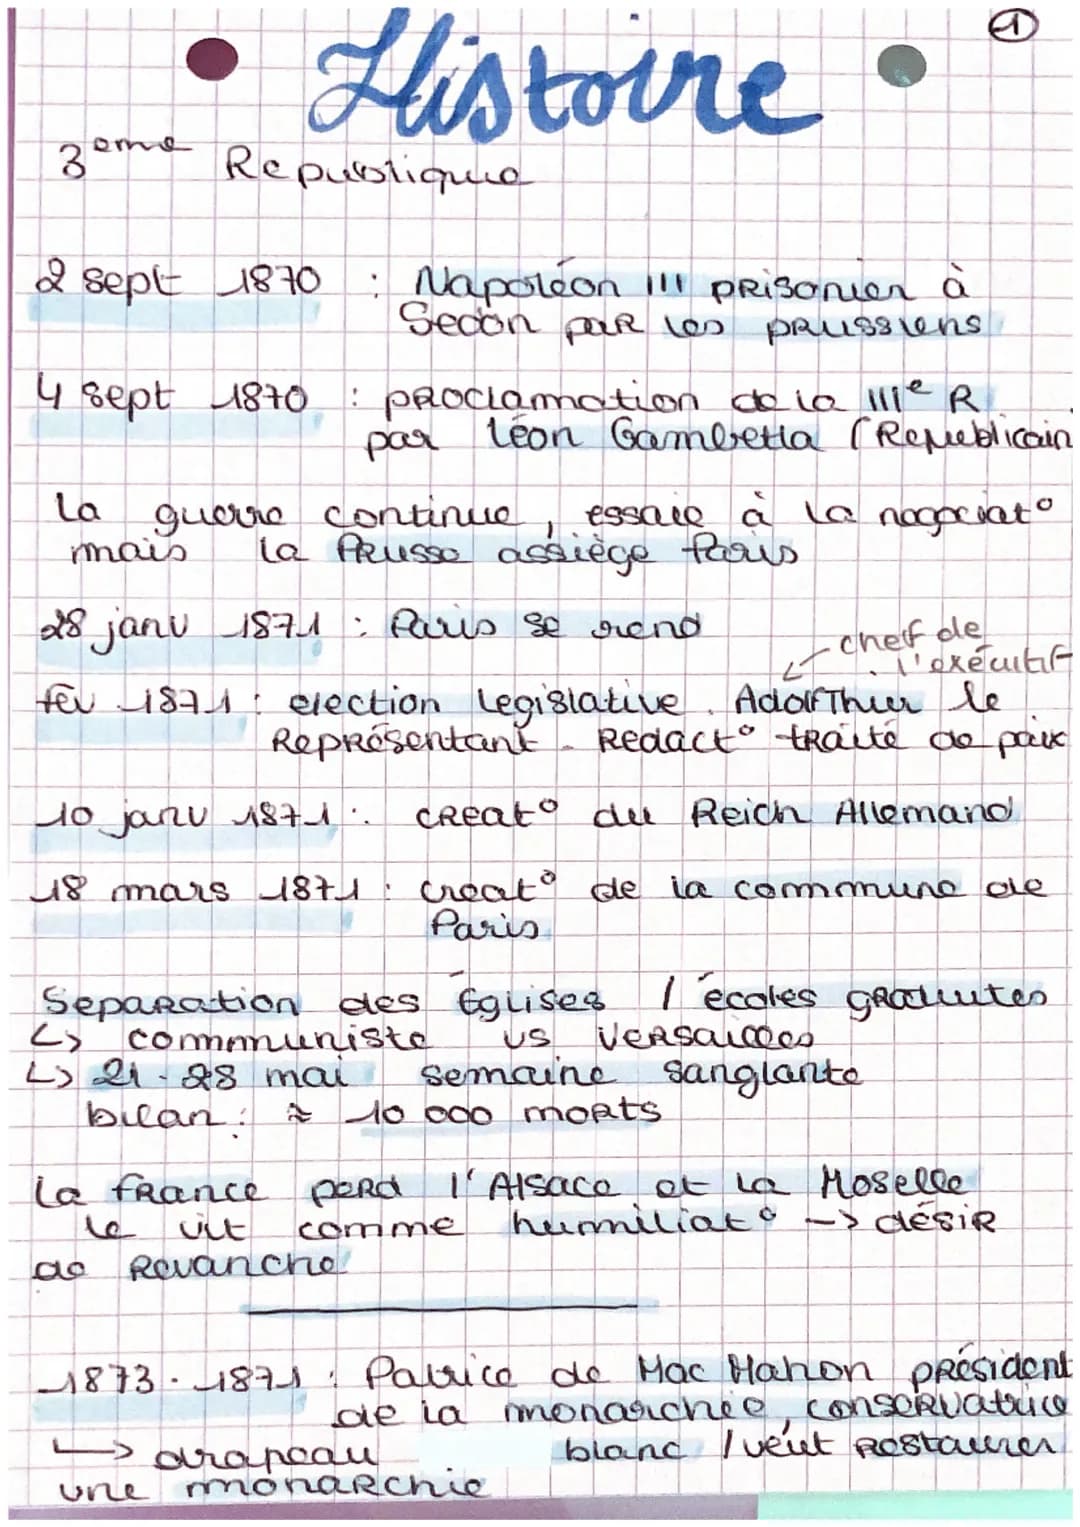 1
Histoire
3eme Republique
2 sept 1870 : Napoléon III prisonier à
Sedan par les prussiens
4 sept 1870 : proclamation de la IIIe R
par Léon Gambetta (Republicain
La guerre continue, essaie à la negociat°
mais la Prusse assiège Paris
28 janv 1871 : Paris se rend
chef de
l'exécutif
fev 1871 : election legislative. Adolf Thier le
Représentant. Redact° traité de paix
10 janv 1871 : creat° du Reich Allemand
18 mars 1871 : creat° de la commune de
Paris
Separation des Églises / écoles gratuites
↳ communiste vs Versailles
↳ 21-28 mai semaine sanglante
bilan : ≈ 10 000 morts
La france perd l'Alsace et la Moselle
le vit comme humiliat° -> désir
de Revanche
1873-1871 : Patrice de Mac Mahon président
de la monarchie, conservatrice
↳ drapeau blanc / veut restaurer
une monarchie